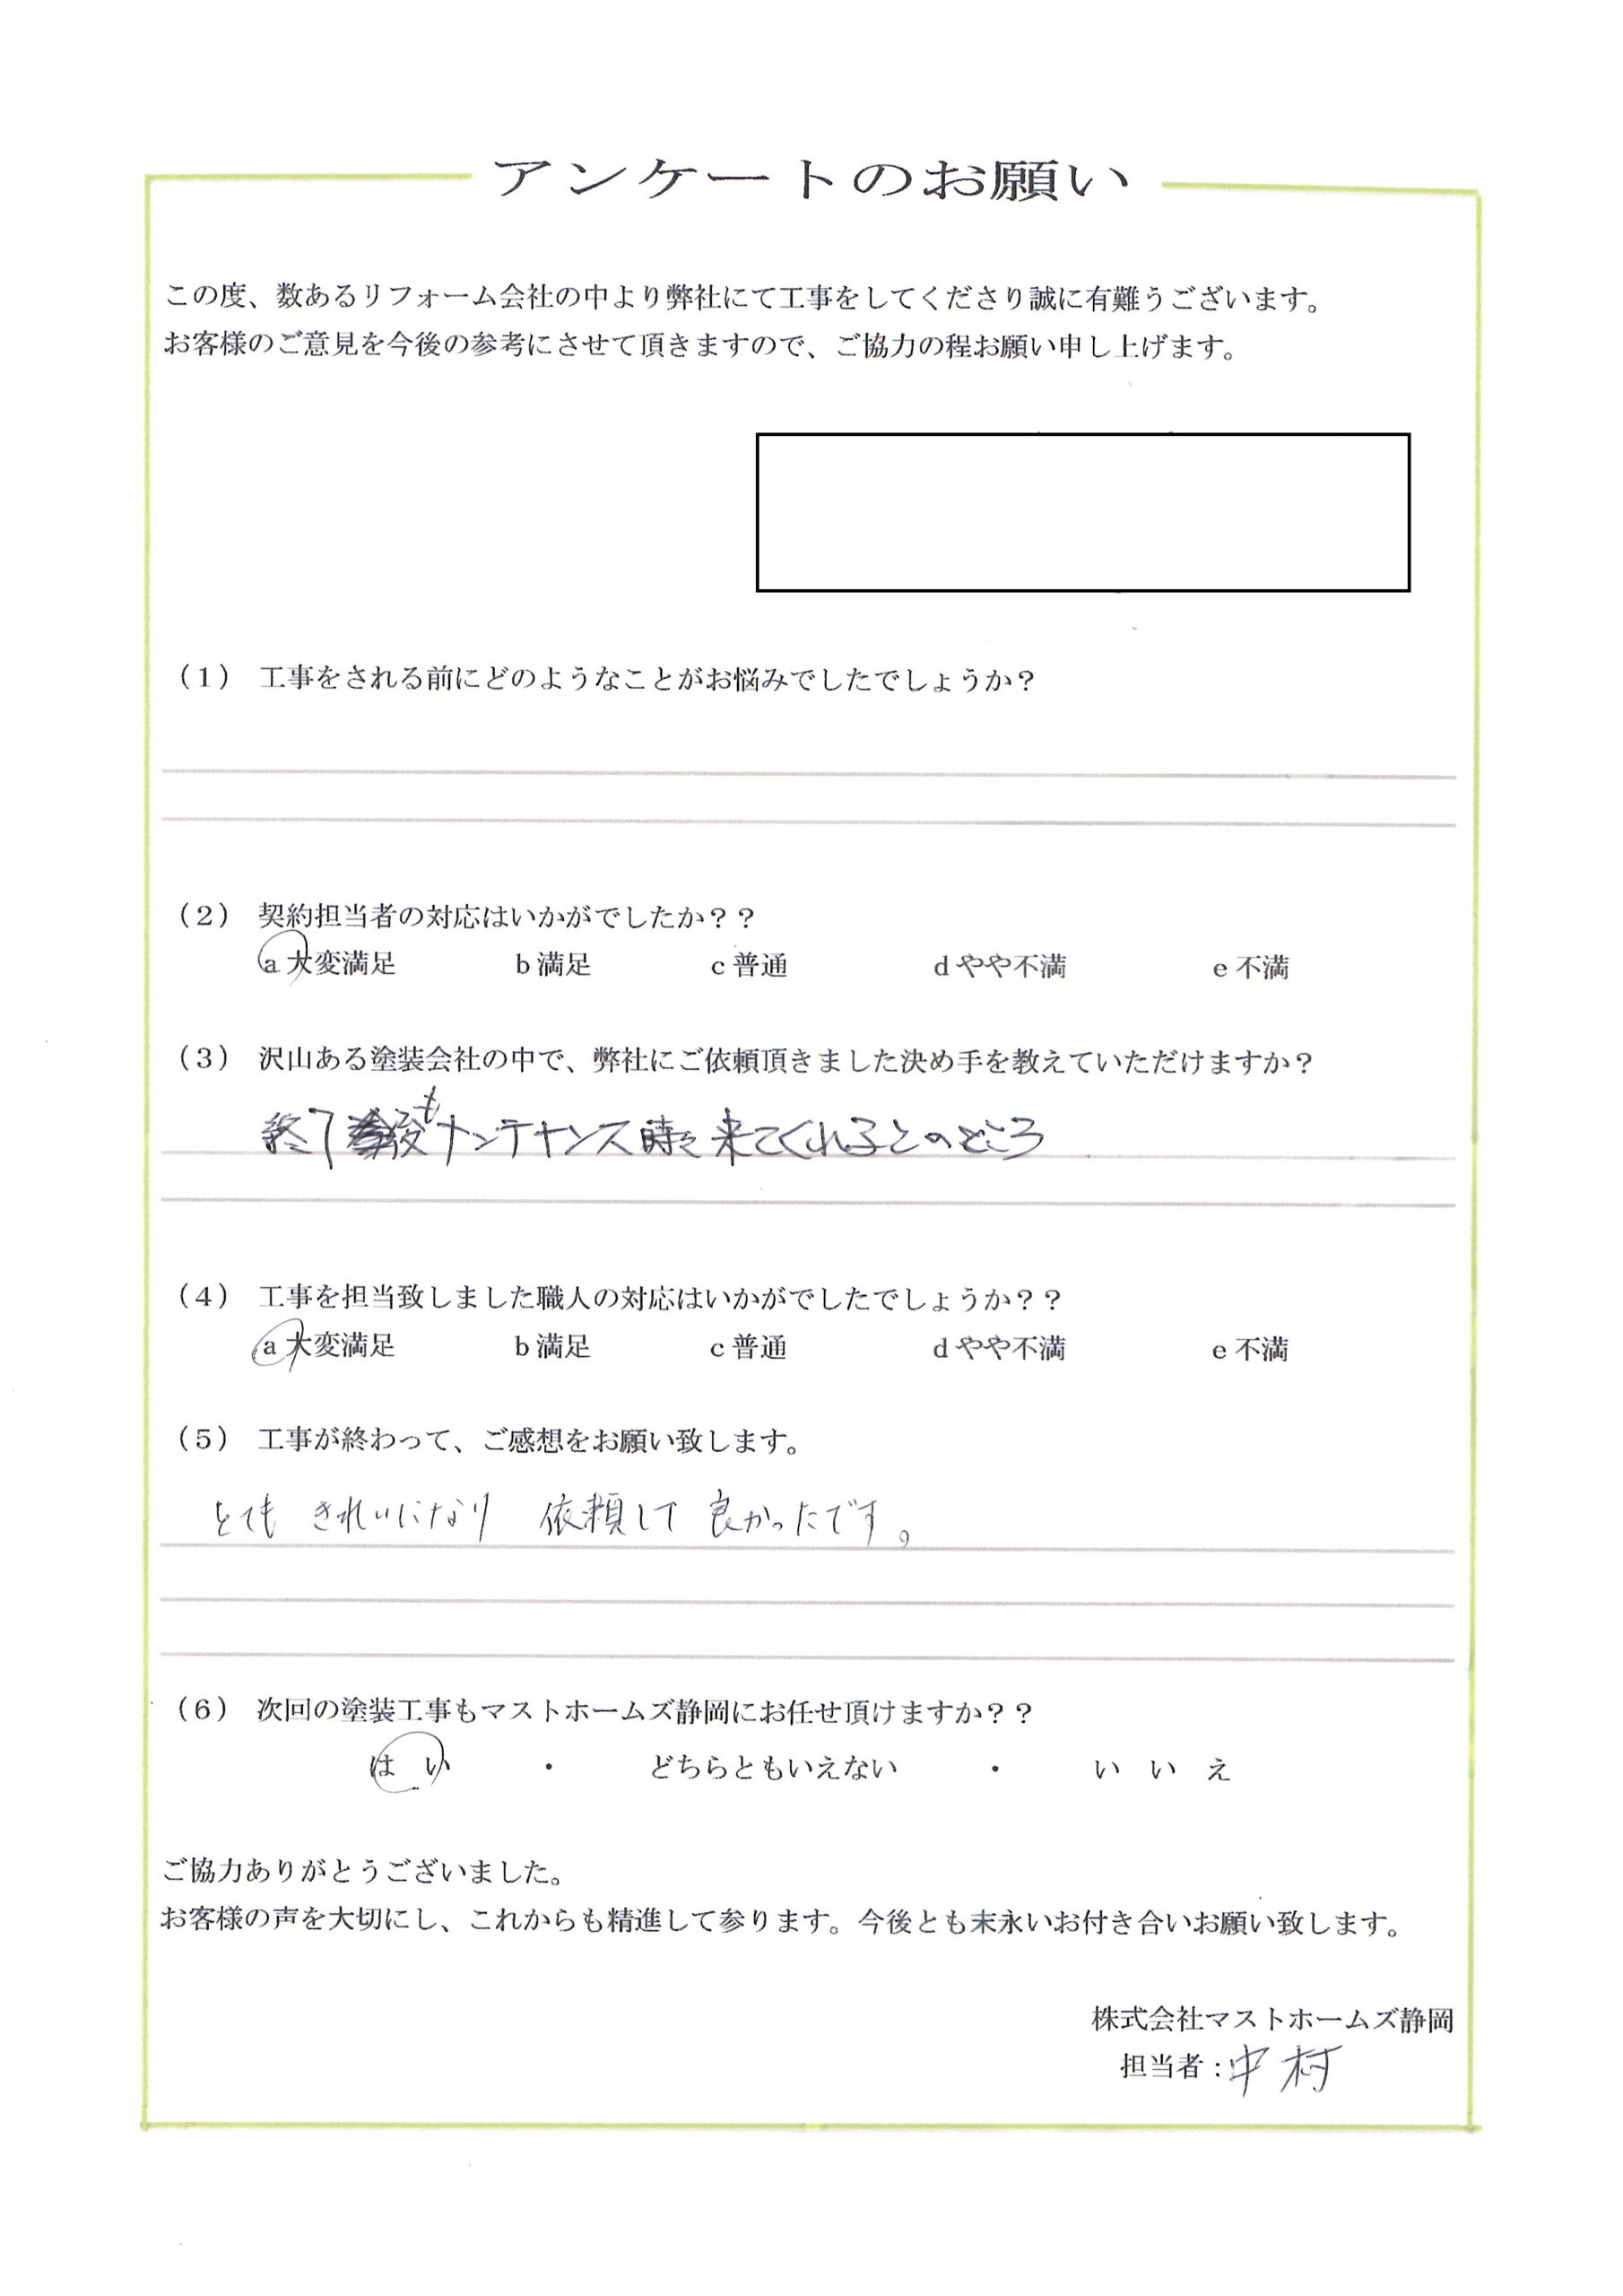 アンケートのお願い
この度、数あるリフォーム会社の中より弊社にて工事をしてくださり誠に有難うございます。
お客様のご意見を今後の参考にさせて頂きますので、ご協力の程お願い申し上げます。
（1） 工事をされる前にどのようなことがお悩みでしたでしょうか？
（2） 契約担当者の対応はいかがでしたか？？
a 大変満足 b 満足 c 普通 d やや不満 e 不満
（3） 沢山ある塗装会社の中で、弊社にご依頼頂きました決め手を教えていただけますか？
終了後もナンテナンス時 来てくれるとのところ
（4） 工事を担当致しました職人の対応はいかがでしたでしょうか？？
a 大変満足 b 満足 c 普通 d やや不満 e 不満
（5） 工事が終わって、ご感想をお願い致します。
とても きれいになり 依頼して 良かったです。
（6） 次回の塗装工事もマストホームズ静岡にお任せ頂けますか？？
は い ・ どちらともいえない ・ い い え
ご協力ありがとうございました。
お客様の声を大切にし、これからも精進して参ります。今後とも末永いお付き合いお願い致します。
株式会社マストホームズ静岡
担当者：中村